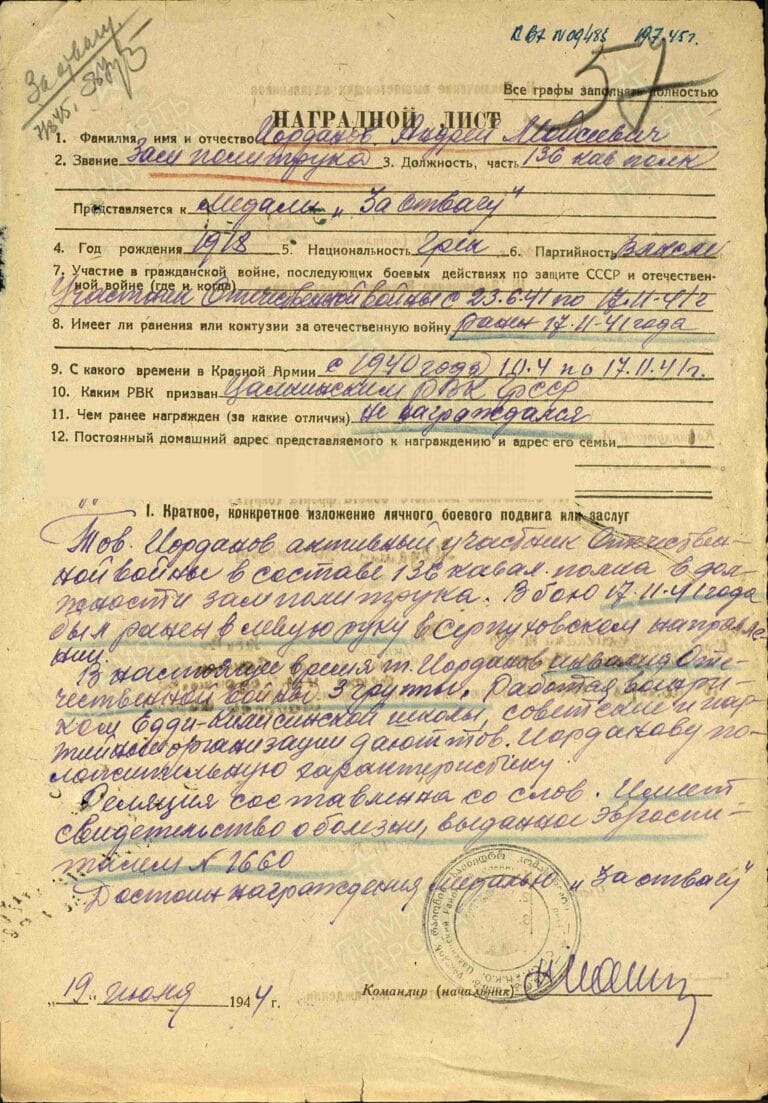 За отвагу
7/3 45.
к вх N 09485 19.7.45 г.
57
Все графы заполнять полностью
НАГРАДНОЙ ЛИСТ
1. Фамилия, имя и отчество Иорданов Андрей Моисеевич
2. Звание Зам политрука 3. Должность, часть 136 кав полк
Представляется к медали „За отвагу"
4. Год рождения 1918 5. Национальность Грек 6. Партийность ВЛКСМ
7. Участие в гражданской войне, последующих боевых действиях по защите СССР и отечествен-
ной войне (где и когда)
Участник Отечественной войны с 23.6.41 по 17.11-41 г
8. Имеет ли ранения или контузии за отечественную войну ранен 17.11-41 года
9. С какого времени в Красной Армии с 1940 года 10.4 по 17.11.41 г.
10. Каким РВК призван Цалкинским РВК ГССР
11. Чем ранее награжден (за какие отличия) не награждался
12. Постоянный домашний адрес представляемого к награждению и адрес его семьи
I. Краткое, конкретное изложение личного боевого подвига или заслуг
Тов. Иорданов активный участник Отечествен-
ной войны в составе 136 кавал. полка в дол-
жности зам политрука. В бою 17.11-41 года
был ранен в левую руку в Серпуховском направле-
нии.
В настоящее время т. Иорданов инвалид Оте-
чественной войны 3 группы. Работая воинру-
ком Едди-Килисинской школы, советские и пар-
тийные организации дают тов. Иорданову по-
ложительную характеристику.
Реляция составлена со слов. Имеет
свидетельство о болезни, выданное эвгоспи-
талем N 2660
Достоин награждения медалью „За отвагу"
„19" июня 1944 г.
Командир (начальник)